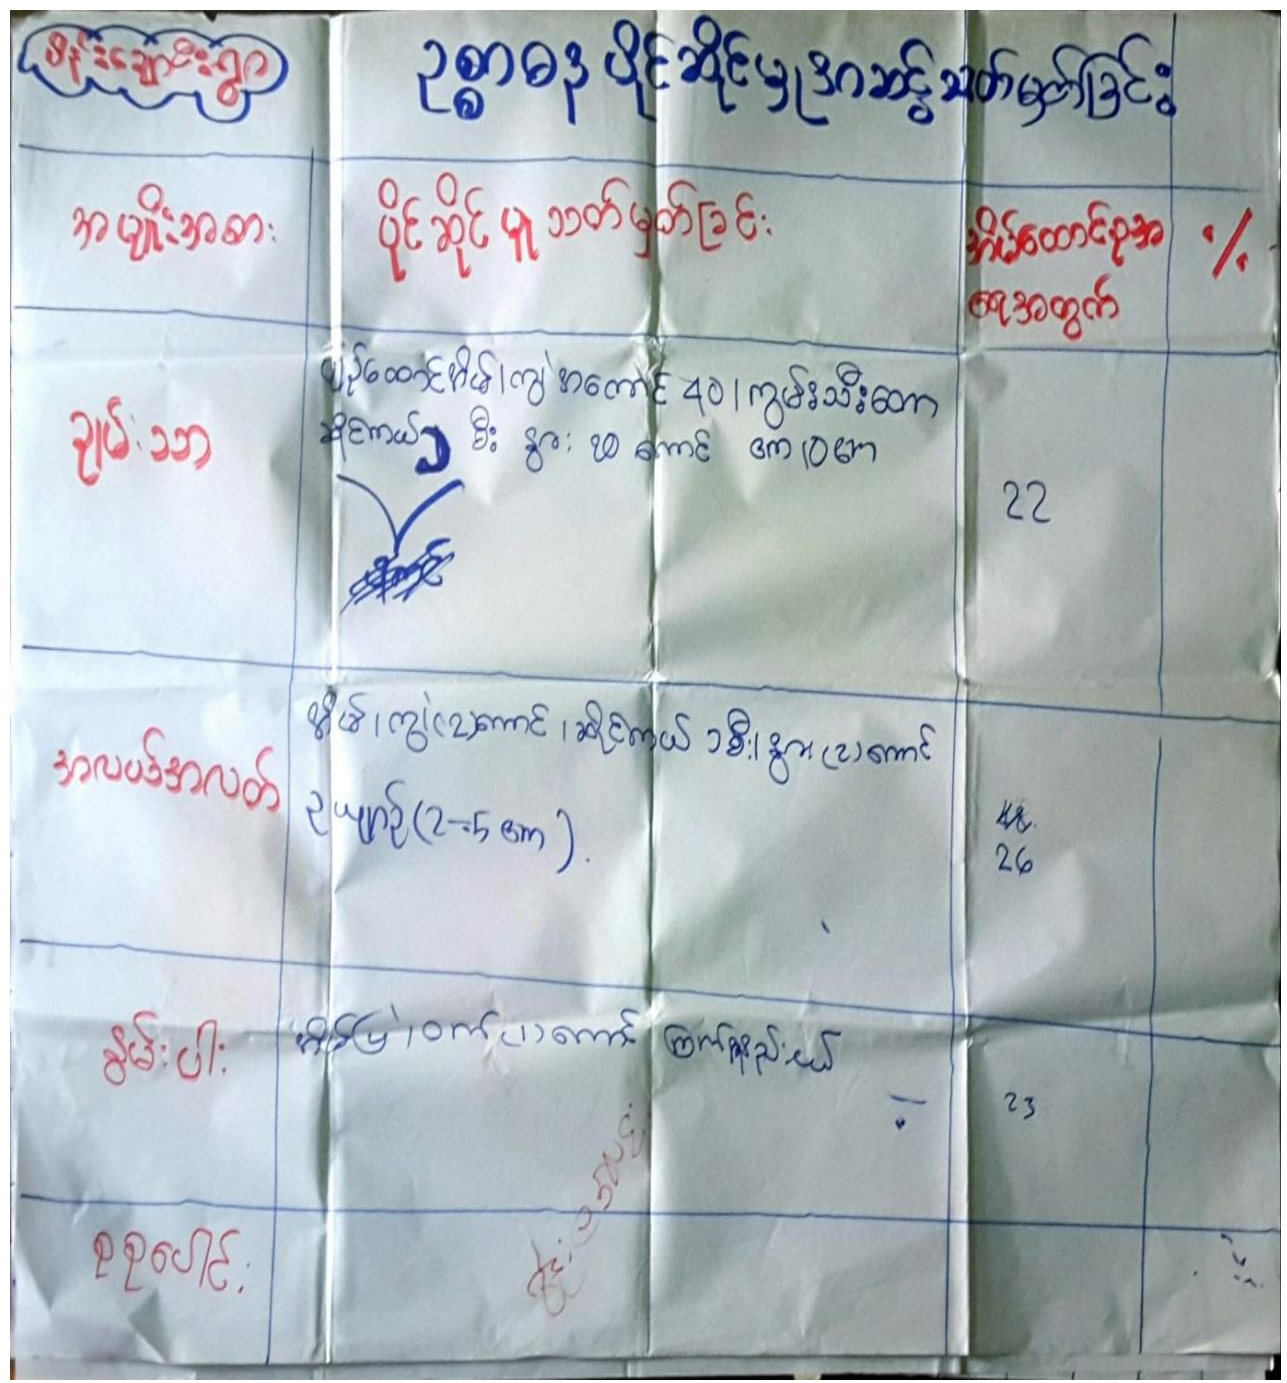 ဥစ္စာဓန ပိုင်ဆိုင်မှုအဆင့်သတ်မှတ်ခြင်း
အမျိုးအစား
ပိုင်ဆိုင်မှု သတ်မှတ်ခြင်း
အိမ်ထောင်စုအ
ရေအတွက်
%
ချမ်းသာ
ပျဉ်ထောင်အိမ်၊ ကျွဲအကောင် 40၊ ကွမ်းသီးတော
ဆိုင်ကယ် ၁ စီး နွား ကောင် ဧက
22
အလယ်အလတ်
အိမ်၊ ကျွဲ(၃)ကောင်၊ ဆိုင်ကယ် ၁စီး၊ နွား (၃) ကောင်
ဥယျာဉ် (2-5 ဧက).
26
နွမ်းပါး
ဝက် (၁) ကောင် ကြက်အနည်းငယ်
23
စုစုပေါင်း